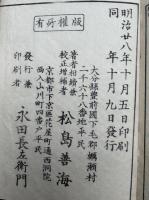 明治廿八年十月五日印刷
同　年十月九日發行
有所權版
大分縣豐前國下毛郡𮕩瀬村
二千六十八番地平民
著者相續兼
校正增補者
松島善海
京都市下京區花屋町通西洞院
西入山川町四番戸平民
發行兼
印刷者
永田長左衛門